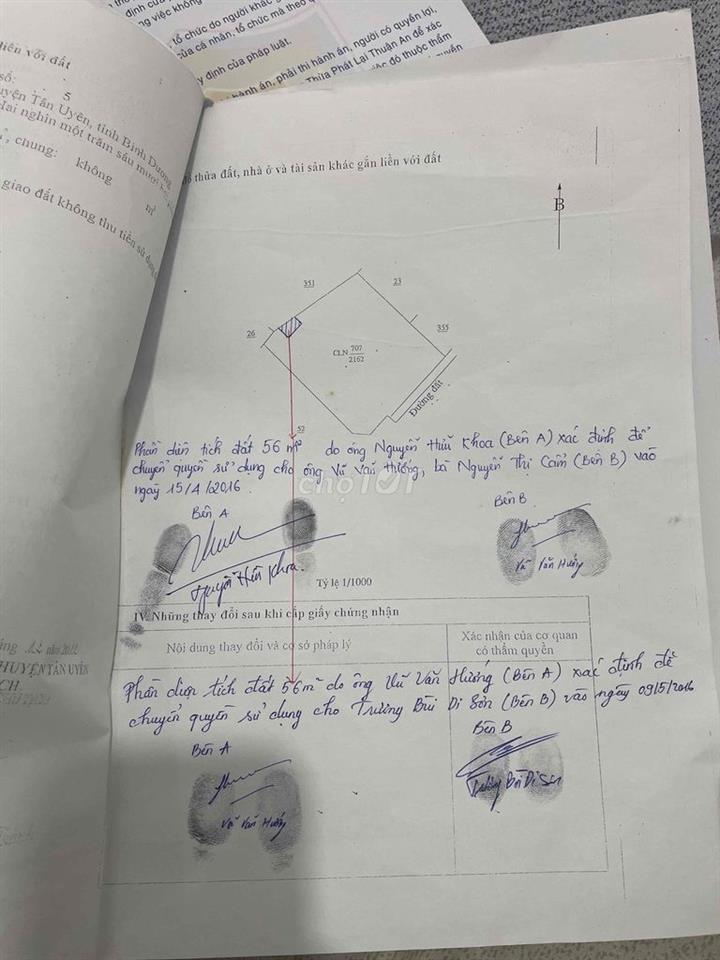 tổ chức do người khác
của cá nhân, tổ chức mà theo
định của pháp luật.
hành án, phải thi hành án, người có quyền lợi,
Thừa Phát Lại Thuận An để xác
đó thuộc thẩm
liền với đất
số: 5
Tân Uyên, tỉnh Bình Dương
Hai nghìn một trăm sáu mươi
chung: không m²
giao đất không thu tiền sử dụng
thửa đất, nhà ở và tài sản khác gắn liền với đất
B
351
23
26
355
CLN 707
2162
Đường đất
52
Phần diện tích đất 56 m² do ông Nguyễn Hữu Khoa (Bên A) xác định để
chuyển quyền sử dụng cho ông Vũ Văn Hướng, bà Nguyễn Thị Cẩm (Bên B) vào
ngày 15/4/2016.
chợTỐT
Bên A
Bên B
Nguyễn Hữu Khoa.
Vũ Văn Hướng
Tỷ lệ 1/1000
IV. Những thay đổi sau khi cấp giấy chứng nhận
Nội dung thay đổi và cơ sở pháp lý
Xác nhận của cơ quan
có thẩm quyền
năm 2012
HUYỆN TÂN UYÊN
Phần diện tích đất 56m² do ông Vũ Văn Hướng (Bên A) xác định để
chuyển quyền sử dụng cho Trương Bùi Di Sơn (Bên B) vào ngày 09/5/2016
Bên A
Bên B
Vũ Văn Hướng
Trương Bùi Di Sơn